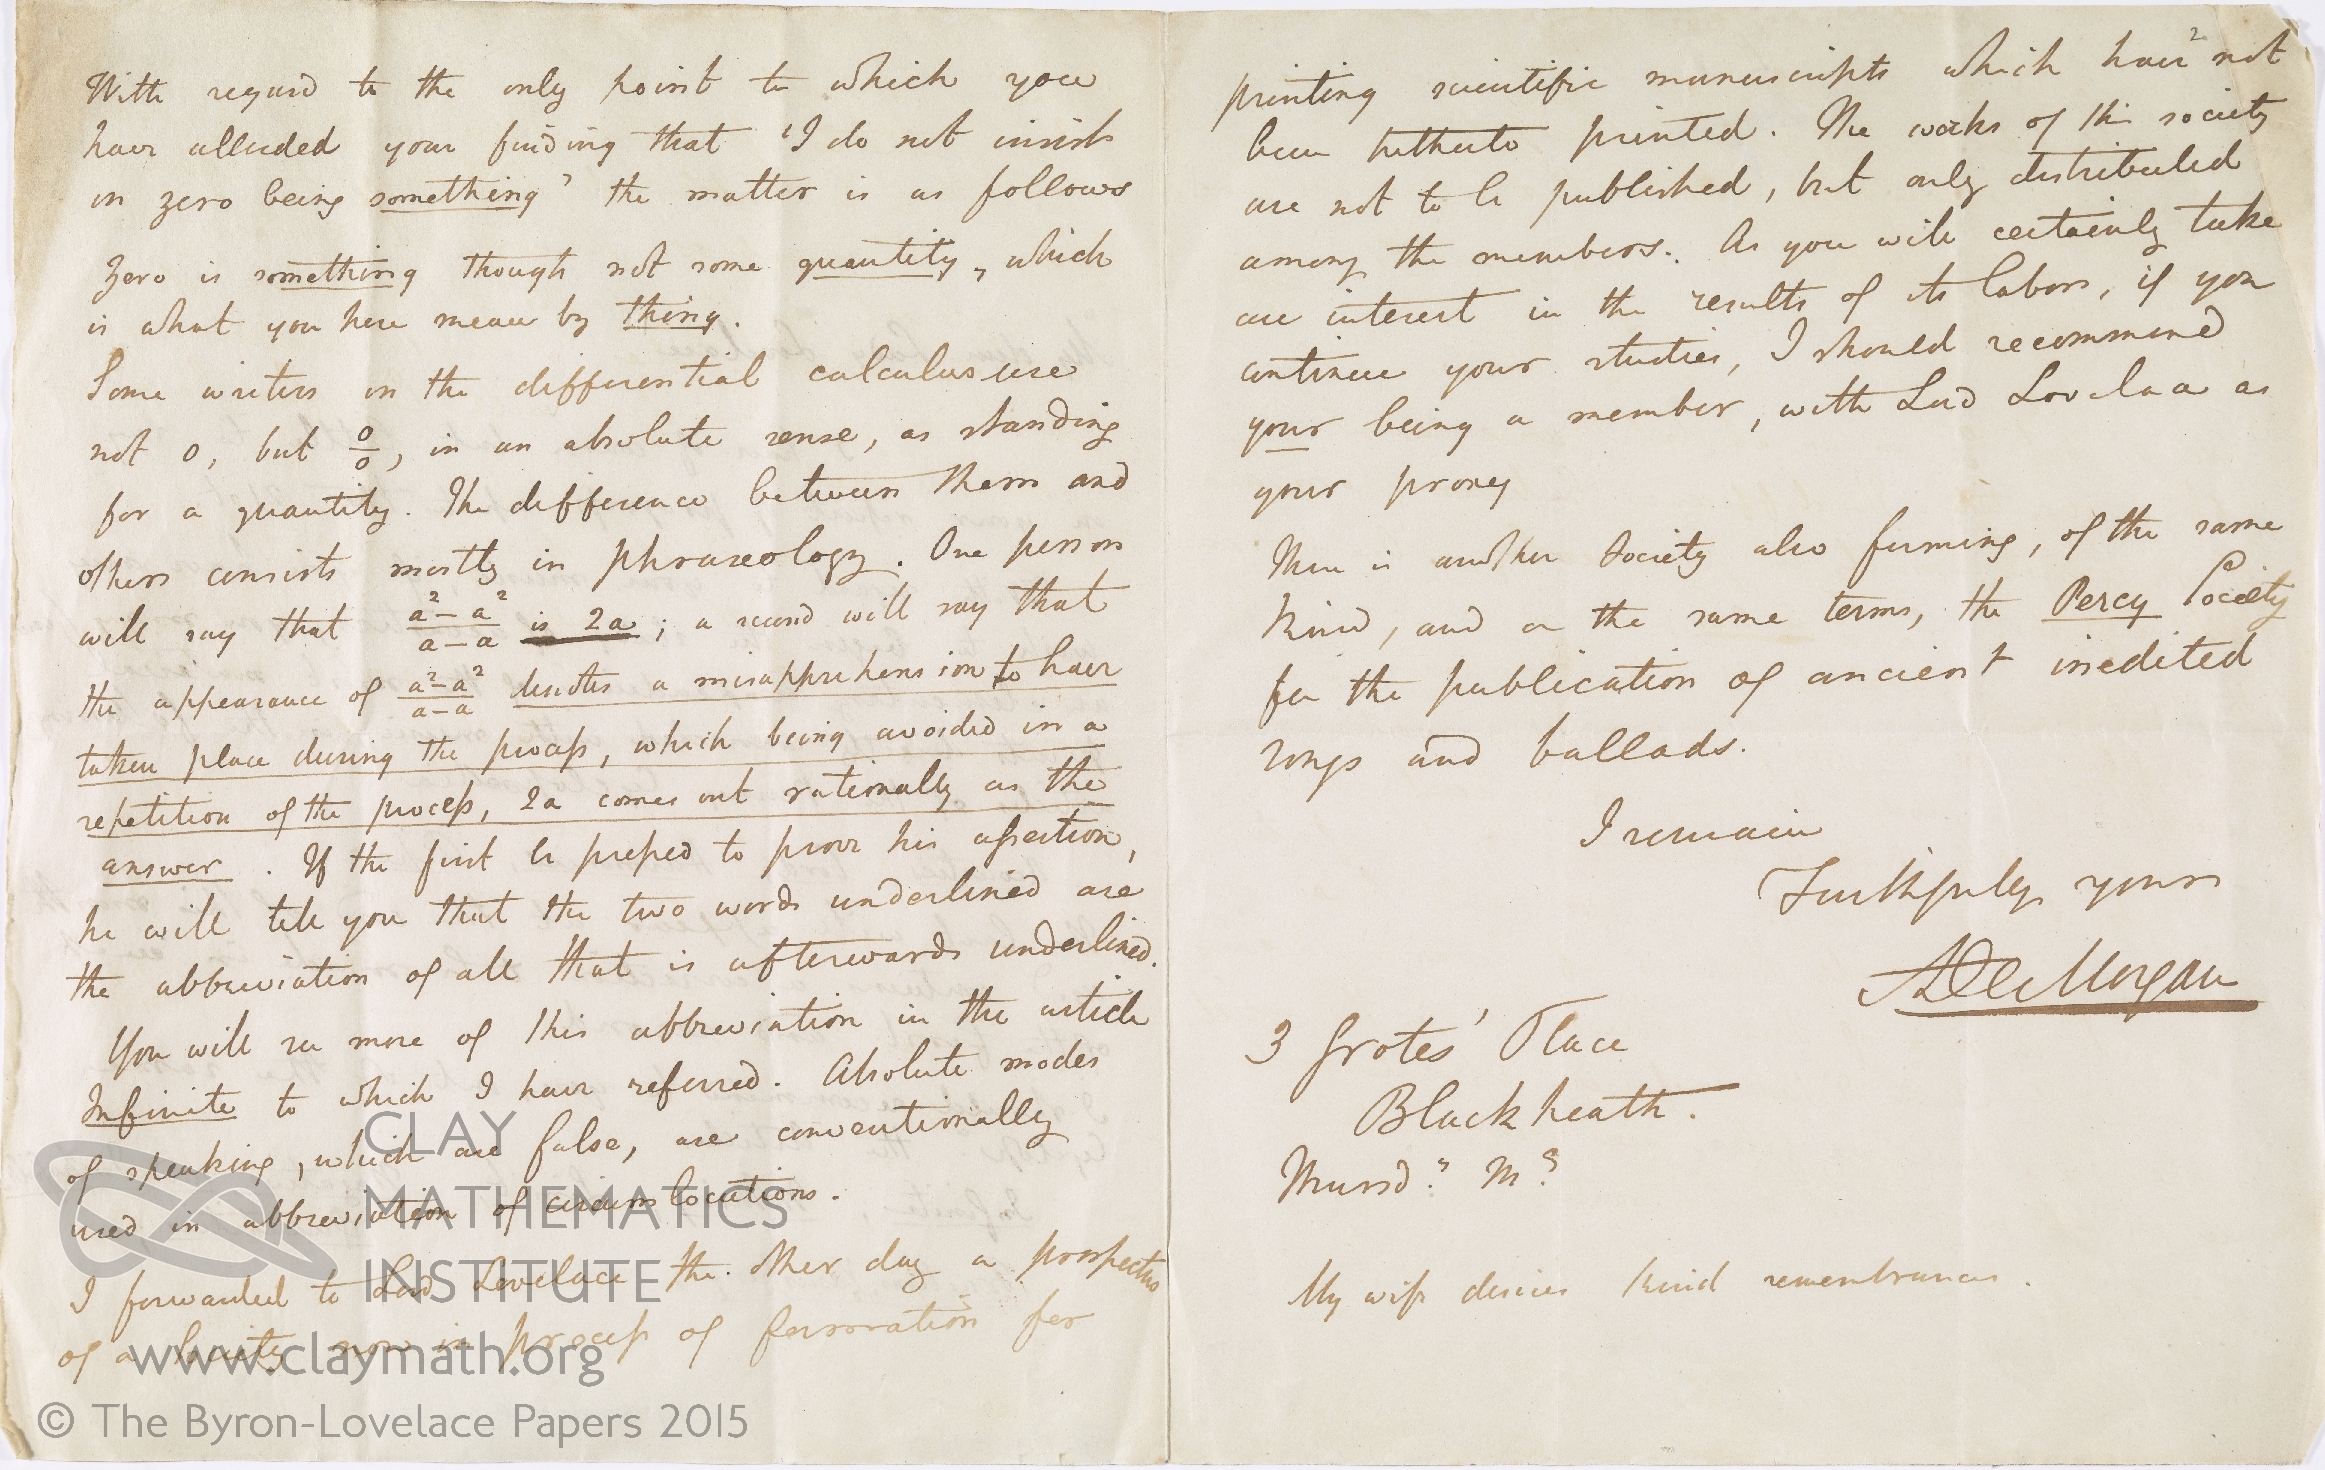 With regard to the only point to which you
have alluded your finding that 'I do not insist
on zero being something' the matter is as follows
Zero is something though not some quantity, which
is what you here mean by thing.
Some writers on the differential calculus use
not 0, but 0/0, in an absolute sense, as standing
for a quantity. The difference between them and
others consists mostly in phraseology. One person
will say that a²−a²/a−a is 2a; a second will say that
the appearance of a²−a²/a−a denotes a misapprehension to have
taken place during the process, which being avoided in a
repetition of the process, 2a comes out rationally as the
answer. If the first be pressed to prove his assertion,
he will tell you that the two words underlined are
the abbreviation of all that is afterwards underlined.
You will see more of this abbreviation in the article
Infinite to which I have referred. Absolute modes
of speaking, which are false, are conventionally
used in abbreviation of circumlocutions.
I forwarded to Lord Lovelace the other day a prospectus
of a Society now in process of formation for
CLAY
MATHEMATICS
INSTITUTE
www.claymath.org
© The Byron-Lovelace Papers 2015
2
printing scientific manuscripts which have not
been hitherto printed. The works of this society
are not to be published, but only distributed
among the members. As you will certainly take
an interest in the results of its labors, if you
continue your studies, I should recommend
your being a member, with Lord Lovelace as
your proxy
There is another Society also forming, of the same
kind, and on the same terms, the Percy Society
for the publication of ancient inedited
songs and ballads.
I remain
Faithfully yours
ADeMorgan
3 Grotes' Place
Blackheath.
My wife desires kind remembrances.